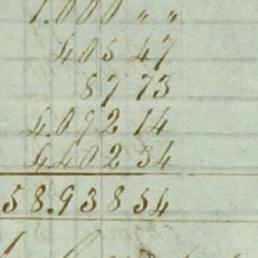 1.000 " "
405 47
87 73
4.092 14
4402 34
58.938 54